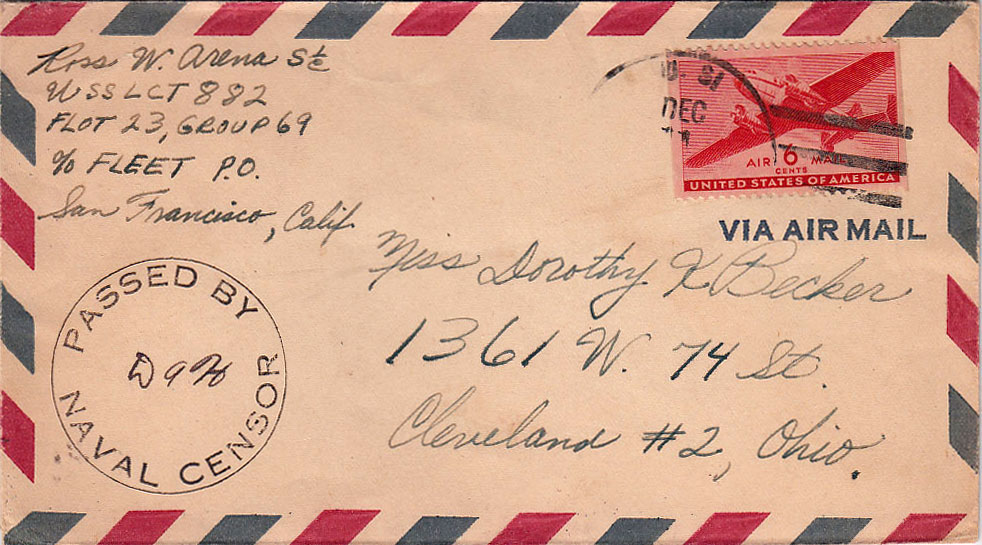 Ross W. Arena S1c
USS LCT 882
FLOT 23, GROUP 69
c/o FLEET P.O.
San Francisco, Calif.
DEC
31
AIR MAIL
6
CENTS
UNITED STATES OF AMERICA
VIA AIR MAIL
Miss Dorothy K Becker
1361 W. 74 St.
Cleveland #2, Ohio.
PASSED BY
NAVAL CENSOR